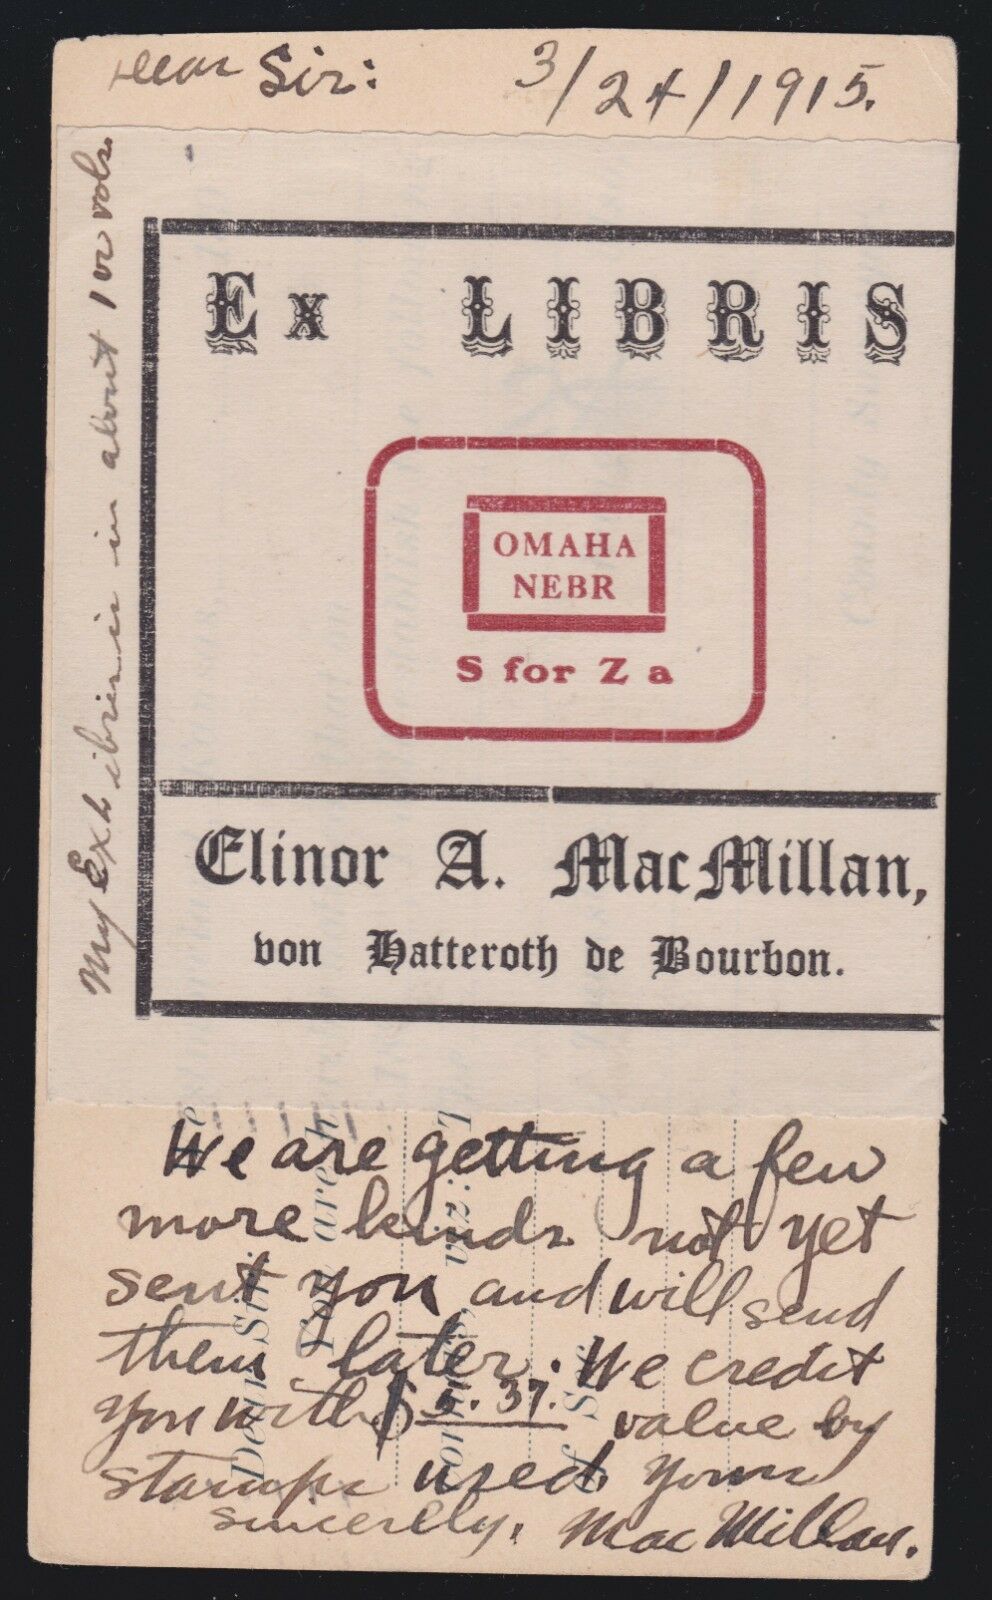 Dear Sir: 3/24/1915.
My Exlibris is in about 100 vols.
Ex LIBRIS
OMAHA
NEBR
S for Z a
Elinor A. MacMillan,
von Hatteroth de Bourbon.
We are getting a few
more kinds not yet
sent you and will send
them later. We credit
you with $5.37. value by
stamps used. Yours
sincerely, MacMillan.
Dear Sir:
You are
viz: